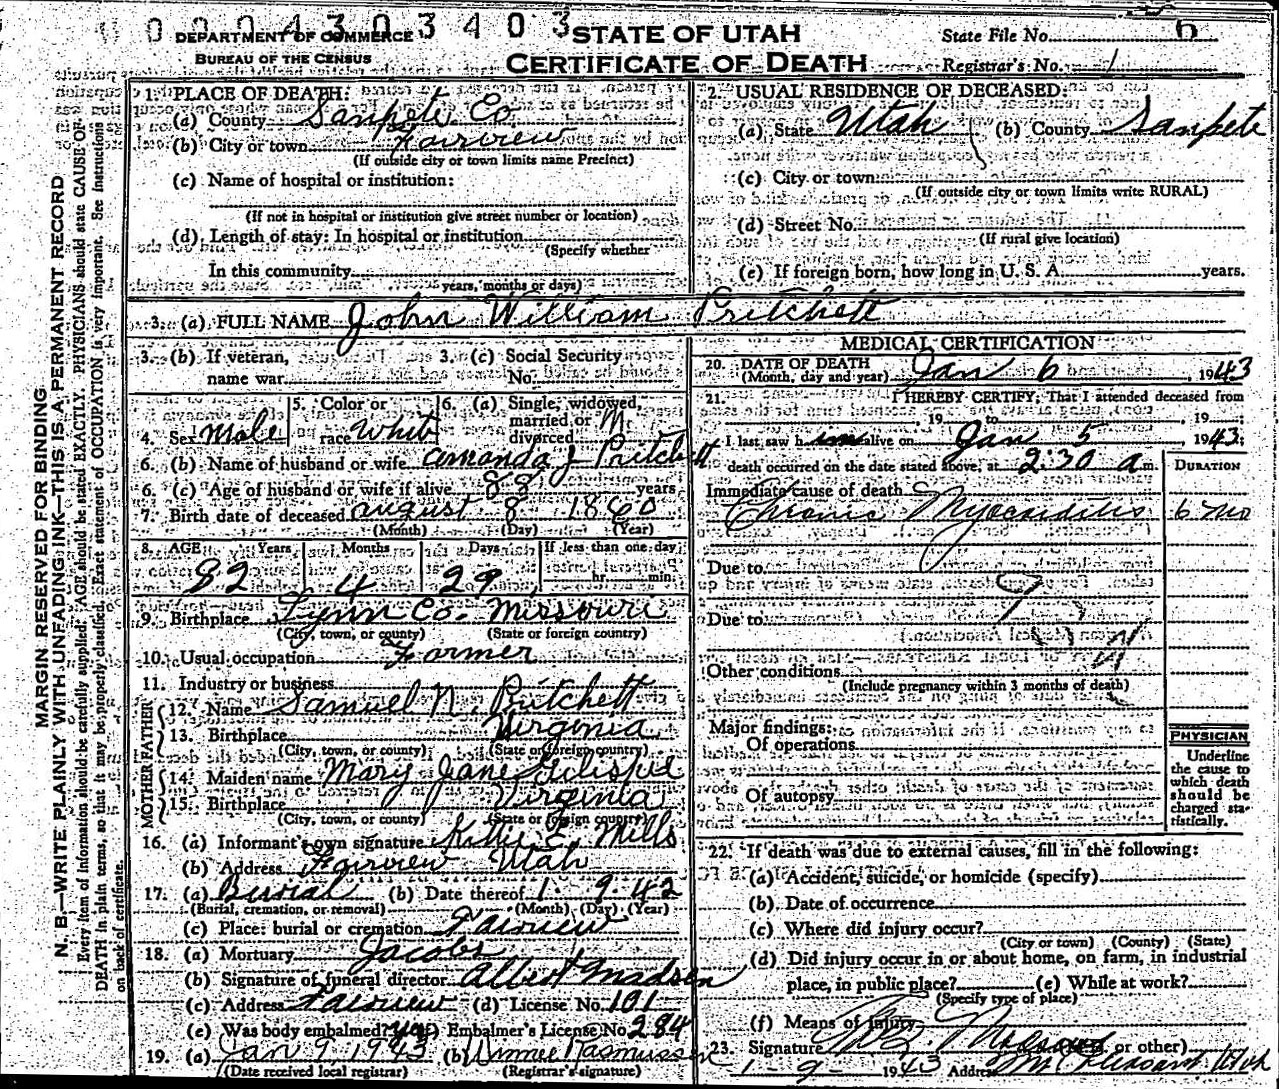 0 2 0 4 3 0 3 4 0 3
DEPARTMENT OF COMMERCE
BUREAU OF THE CENSUS
STATE OF UTAH
CERTIFICATE OF DEATH
State File No. 6
Registrar's No. 1
MARGIN RESERVED FOR BINDING
N. B.—WRITE PLAINLY WITH UNFADING INK—THIS IS A PERMANENT RECORD
Every item of information should be carefully supplied. AGE should be stated EXACTLY. PHYSICIANS should state CAUSE OF
DEATH in plain terms, so that it may be properly classified. Exact statement of OCCUPATION is very important. See Instructions
on back of certificate.
1. PLACE OF DEATH:
(a) County Sanpete Co
(b) City or town Fairview
(If outside city or town limits name Precinct)
(c) Name of hospital or institution:
(If not in hospital or institution give street number or location)
(d) Length of stay: In hospital or institution
(Specify whether
In this community
years, months or days)
2. USUAL RESIDENCE OF DECEASED:
(a) State Utah (b) County Sanpete
(c) City or town
(If outside city or town limits write RURAL)
(d) Street No.
(If rural give location)
(e) If foreign born, how long in U. S. A. years.
3. (a) FULL NAME John William Pritchett
3. (b) If veteran,
name war
3. (c) Social Security
No.
4. Sex Male
5. Color or
race White
6. (a) Single, widowed,
married or
divorced M.
6. (b) Name of husband or wife Amanda J Pritchett
6. (c) Age of husband or wife if alive years
7. Birth date of deceased August 8 1860
(Month) (Day) (Year)
8. AGE Years Months Days If less than one day
82 4 29 hr. min.
9. Birthplace Lynn Co. Missouri
(City, town, or county) (State or foreign country)
10. Usual occupation Farmer
11. Industry or business
FATHER
12. Name Samuel N. Pritchett
13. Birthplace Virginia
(City, town, or county) (State or foreign country)
MOTHER
14. Maiden name Mary Jane Gilispie
15. Birthplace Virginia
(City, town, or county) (State or foreign country)
16. (a) Informant's own signature Mills
(b) Address Fairview Utah
17. (a) Burial (b) Date thereof 1 9 43
(Burial, cremation, or removal) (Month) (Day) (Year)
(c) Place: burial or cremation Fairview
18. (a) Mortuary Jacobs
(b) Signature of funeral director Albert Madsen
(c) Address Fairview (d) License No. 101
(e) Was body embalmed? yes (f) Embalmer's License No. 284
19. (a) Jan 9, 1943 (b) Rasmussen
(Date received local registrar) (Registrar's signature)
MEDICAL CERTIFICATION
20. DATE OF DEATH
(Month, day and year) Jan 6, 1943
21. I HEREBY CERTIFY, That I attended deceased from
, 19 to , 19
I last saw h im alive on Jan 5, 1943;
death occurred on the date stated above, at 2:30 a m.
DURATION
Immediate cause of death
Chronic Myocarditis 6 mo
Due to
Due to
Other conditions
(Include pregnancy within 3 months of death)
Major findings:
Of operations
Of autopsy
PHYSICIAN
Underline
the cause to
which death
should be
charged sta-
tistically.
22. If death was due to external causes, fill in the following:
(a) Accident, suicide, or homicide (specify)
(b) Date of occurrence
(c) Where did injury occur?
(City or town) (County) (State)
(d) Did injury occur in or about home, on farm, in industrial
place, in public place? (e) While at work?
(Specify type of place)
(f) Means of injury
23. Signature or other)
1 - 9 - 1943 Address Mt Pleasant, Utah